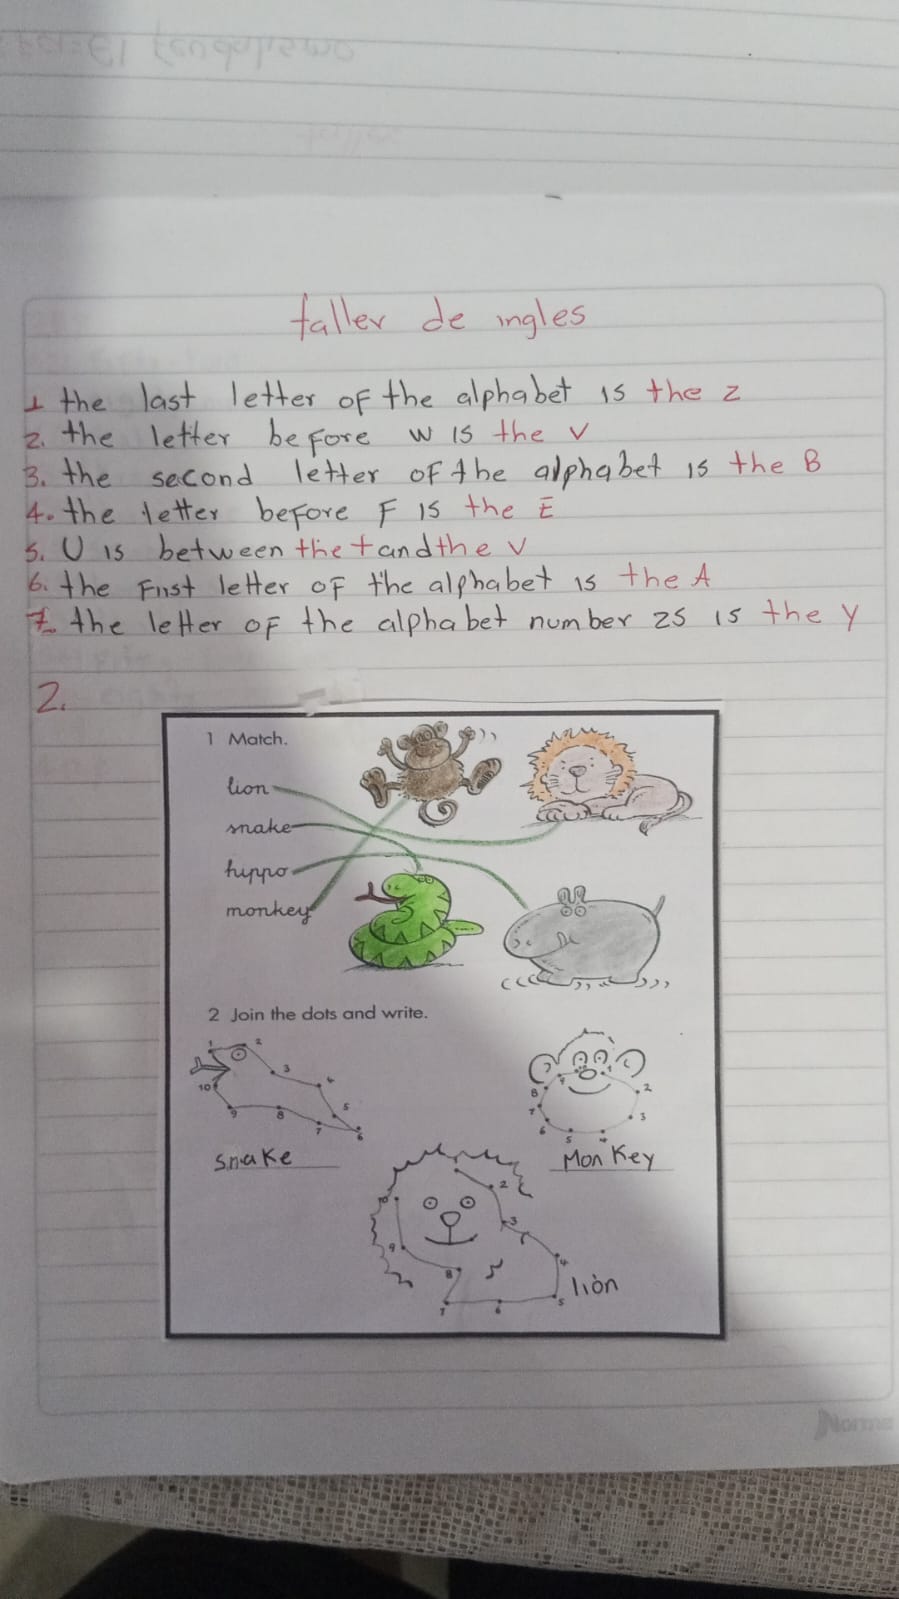 taller de ingles
1 the last letter of the alphabet is the z
2. the letter before w is the v
3. the second letter of the alphabet is the B
4. the letter before F is the E
5. U is between the t and the v
6. the First letter of the alphabet is the A
7. the letter of the alphabet number 25 is the y
2.
1 Match.
lion
snake
hippo
monkey
2 Join the dots and write.
1 2 3 4 5 6 7 8 9 10
1 2 3 4 5 6 7 8 9
snake
Monkey
2 3 4 5 6 7 8 9 10
lion
Norma